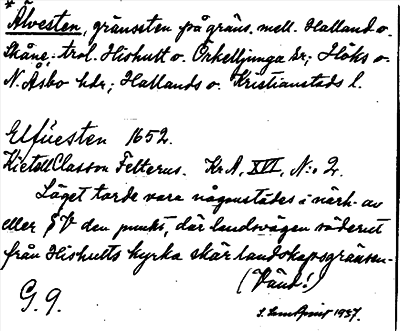 * Älvesten, gränssten på gräns. mell. Halland o.
Skåne; trol. Hishult o. Örkelljunga sr; Höks o.
N. Åsbo hdr; Hallands o. Kristianstads l.
Elfüesten 1652.
Kietell Classon Felterus. Kr.A. XVI, N:o 2.
Läget torde vara någonstädes i närh. av
eller SV den punkt, där landsvägen söderut
från Hishults kyrka skär landskapsgränsen.
(Vänd!)
G. 9.
1937.